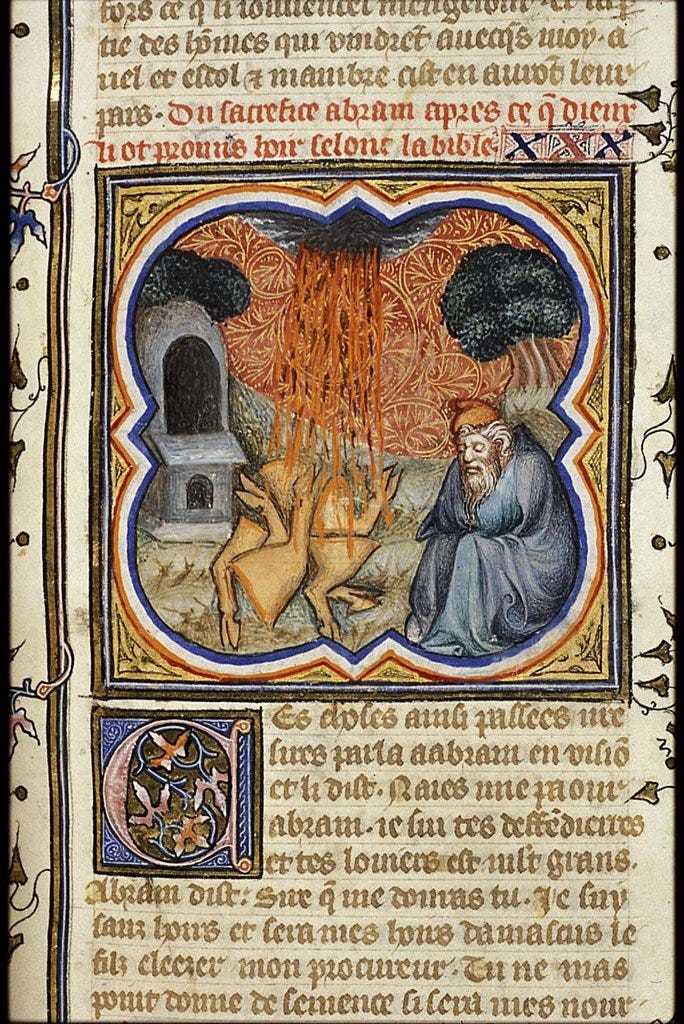 fors ce q̃ li iouuencel mengeront. et la p̱
tie des hõmes qui vindrẽt auecq̃s moy. a
nel et escol ⁊ mambre cist en aurõt leur
pars. Du sacrefice abram apres ce q̃ dieux
li ot promis hoir selonc la bible.
Ces choses ainsi passees me
sires parla a abram en visiõ
et li dist. Naies mie paour
abram. ie sui tes deffẽdierres
et tes louiers est mlt̃ grans.
Abram dist. Sire q̃ me donras tu. Je suy
sanz hoirs et sera mes hoirs damascus le
filz eleezer mon procureur. Tu ne mas
point donne de semence si sera mes nour